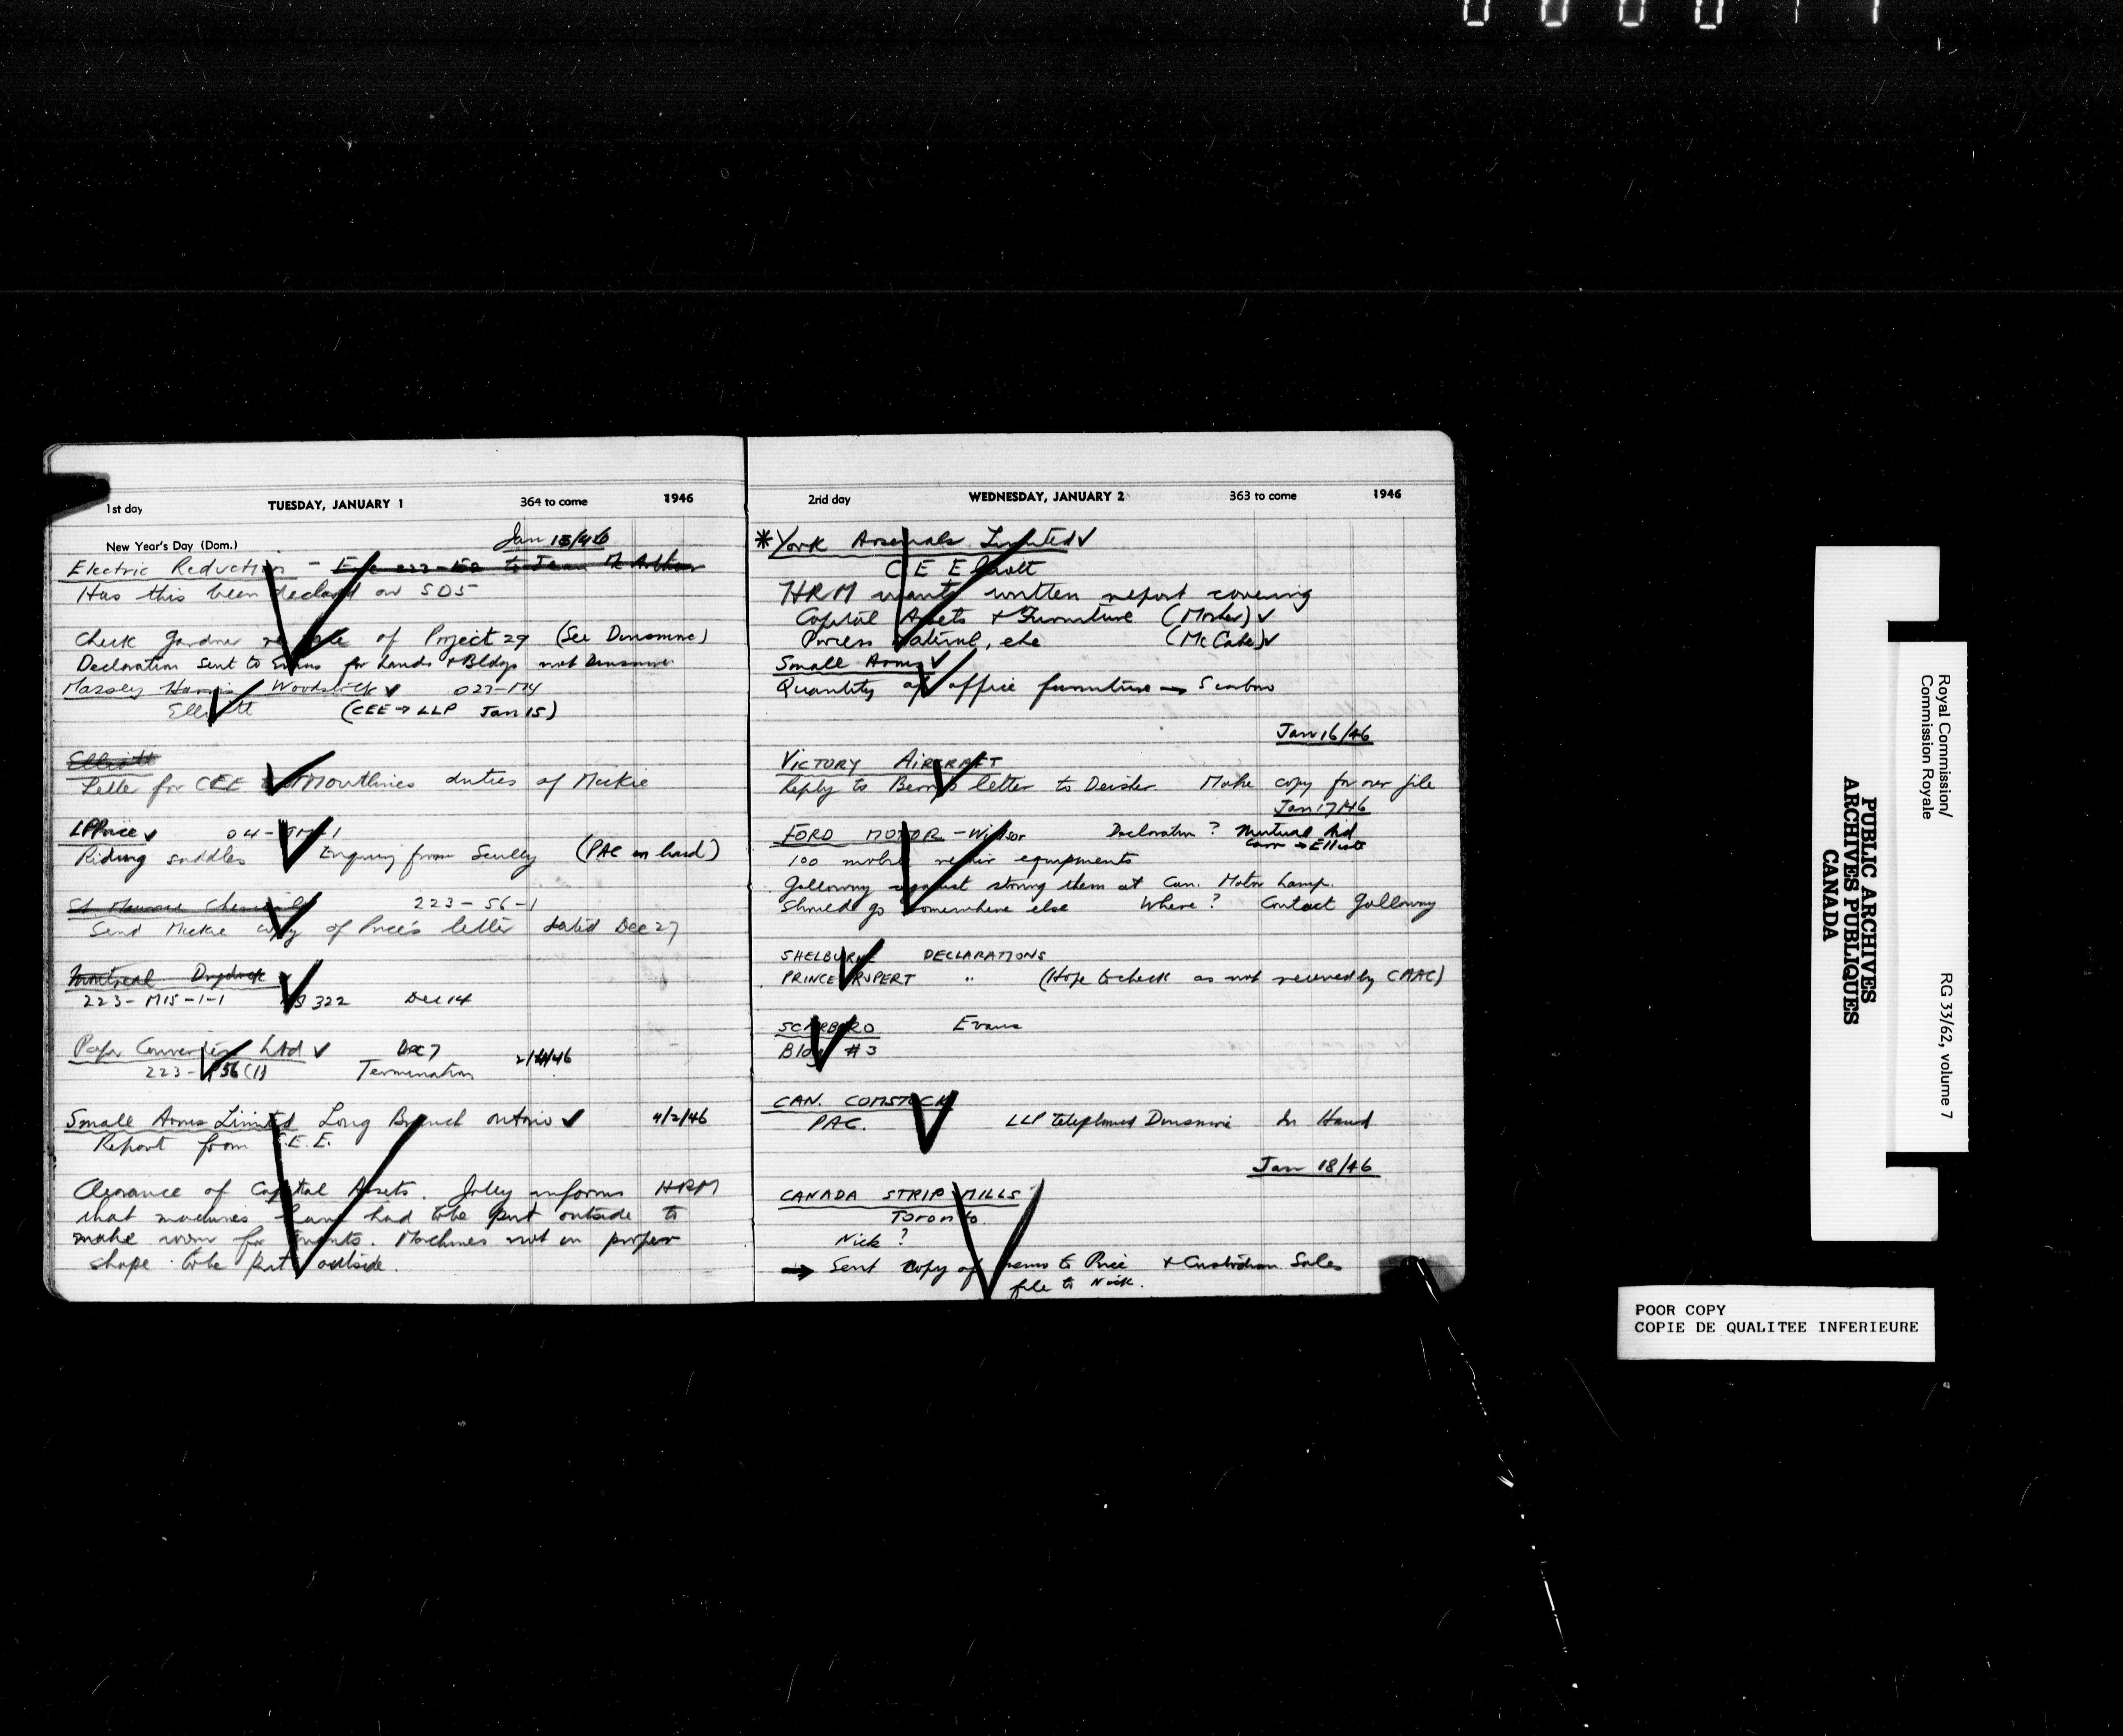 1st day TUESDAY, JANUARY 1 364 to come 1946
New Year's Day (Dom.) Jan 15/46
Electric Reduction -
Has this been declared on SD5
Check Gardner re sale of Project 29 (See Dunsmore)
Declaration sent to Evans for Lands & Bldgs not Dunsmore
Massey Harris Woodstock ✓
Elliott (CEE → LLP Jan 15)
Elliott
Letter for CEE outlines duties of Mickie
LPPrice ✓
Riding saddles Enquiry from Scully (PAC in hand)
St Maurice Chemicals 223-56-1
Send Mickie copy of Price's letter dated Dec 27
Montreal Drydock
223-M15-1-1 322 Dec 14
Paper Converters Ltd ✓ Dec 7
Termination
Small Arms Limited Long Branch Ontario ✓ 4/2/46
Report from C.E.E.
Clearance of Capital Assets. Jolley informs HRM
that machines have had to be put outside to
make room for tenants. Machines not in proper
shape to be put outside.
2nd day WEDNESDAY, JANUARY 2 363 to come 1946
*York Arsenals Limited ✓
C E Elliott
HRM wants written report covering
Capital Assets & Furniture (Mosher) ✓
Process Material, etc (McCabe) ✓
Small Arms ✓
Quantity of office furniture → Scarboro
Jan 16/46
VICTORY AIRCRAFT
Reply to Berry's letter to Deisher Make copy for our file
Jan 17/46
FORD MOTOR - Windsor Declaration? Mutual Aid
Carr → Elliott
100 mobile repair equipments
Galloway against storing them at Can. Motor Lamp.
Should go somewhere else Where? Contact Galloway
SHELBURNE DECLARATIONS
PRINCE RUPERT " (Hope to check as not received by CAAC)
SCARBORO Evans
Bldg #3
CAN. COMSTOCK
PAC. LLP telephoned Dunsmore In Hand
Jan 18/46
CANADA STRIP MILLS
Toronto
Nick ?
→ Sent copy of memo to Price & Custodian Sales
file to Nick.
Royal Commission/
Commission Royale
RG 33/62, volume 7
PUBLIC ARCHIVES
ARCHIVES PUBLIQUES
CANADA
POOR COPY
COPIE DE QUALITEE INFERIEURE